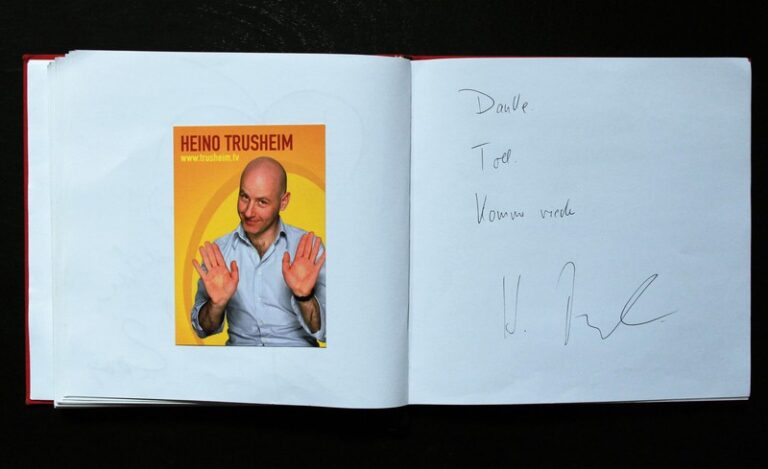 HEINO TRUSHEIM
www.trusheim.tv
Danke.
Toll.
Komme wieder
H. Trusheim